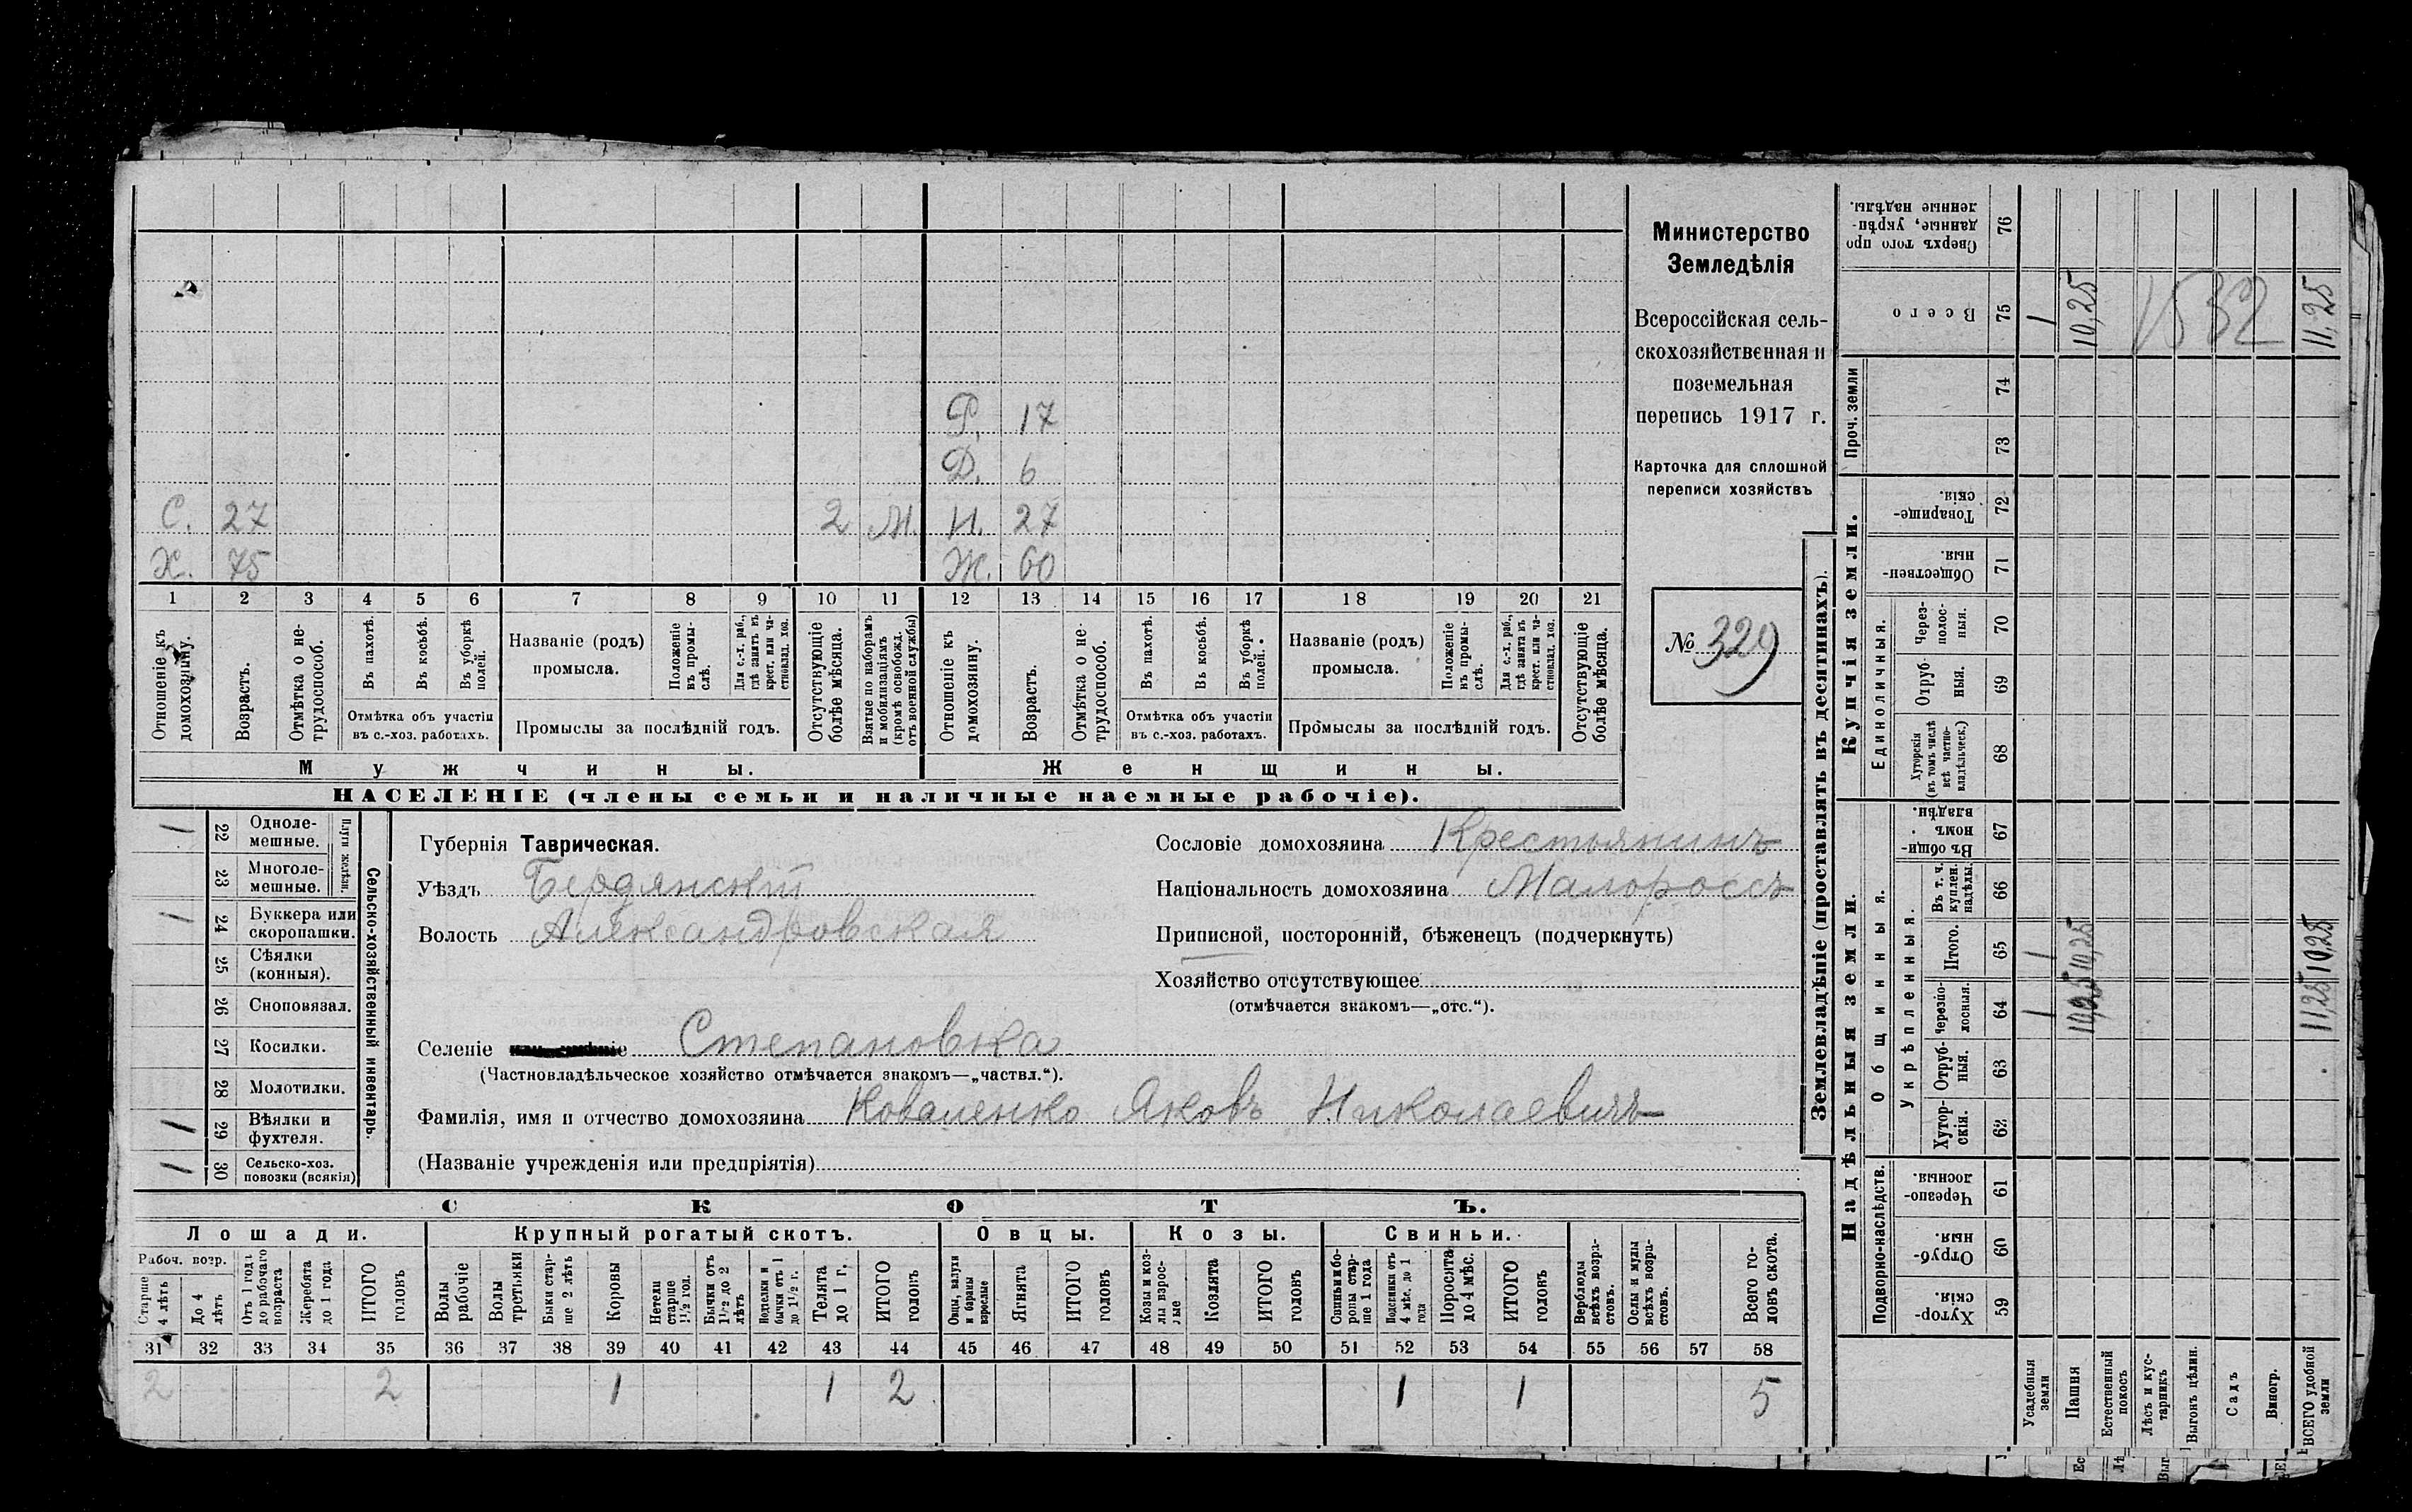 Р. 17
Д. 6
С. 27 2 М. Н. 27
Х. 75 Ж. 60
1 2 3 4 5 6 7 8 9 10 11 12 13 14 15 16 17 18 19 20 21
Отношеніе къ домохозяину.
Возрастъ.
Отмѣтка о не-
трудоспособ.
Въ пахотѣ.
Въ косьбѣ.
Въ уборкѣ
полей.
Отмѣтка объ участіи
въ с.-хоз. работахъ.
Названіе (родъ)
промысла.
Положеніе
въ промы-
слѣ.
Для с.-х. раб.,
гдѣ занятъ въ
крест. или ча-
стновлад. хоз.
Промыслы за послѣдній годъ.
Отсутствующіе
болѣе мѣсяца.
Взятые по наборамъ
и мобилизаціямъ
(кромѣ освобожд.
отъ военной службы)
Отношеніе къ
домохозяину.
Возрастъ.
Отмѣтка о не-
трудоспособ.
Въ пахотѣ.
Въ косьбѣ.
Въ уборкѣ
полей.
Отмѣтка объ участіи
въ с.-хоз. работахъ.
Названіе (родъ)
промысла.
Положеніе
въ промы-
слѣ.
Для с.-х. раб.,
гдѣ занята въ
крест. или ча-
стновлад. хоз.
Промыслы за послѣдній годъ.
Отсутствующіе
болѣе мѣсяца.
Мужчины.
Женщины.
НАСЕЛЕНІЕ (члены семьи и наличные наемные рабочіе).
Министерство
Земледѣлія
Всероссійская сель-
скохозяйственная и
поземельная
перепись 1917 г.
Карточка для сплошной
переписи хозяйствъ
№ 329
1 22 Одноле-
мешные.
23 Многоле-
мешные.
Плуги желѣзн.
1 24 Буккера или
скоропашки.
25 Сѣялки
(конныя).
26 Сноповязал.
27 Косилки.
28 Молотилки.
1 29 Вѣялки и
фухтеля.
1 30 Сельско-хоз.
повозки (всякія)
Сельско-хозяйственный инвентарь.
Губернія Таврическая.
Уѣздъ Бердянскій
Волость Александровская
Сословіе домохозяина Крестьянинъ
Національность домохозяина Малороссъ
Приписной, посторонній, бѣженецъ (подчеркнуть)
Хозяйство отсутствующее
(отмѣчается знакомъ—„отс.“).
Селеніе Степановка
(Частновладѣльческое хозяйство отмѣчается знакомъ—„частвл.“).
Фамилія, имя и отчество домохозяина Коваленко Яковъ Николаевичъ
(Названіе учрежденія или предпріятія)
СКОТЪ.
Лошади. Крупный рогатый скотъ. Овцы. Козы. Свиньи.
Рабоч. возр.
Старше
4 лѣтъ
До 4
лѣтъ
Отъ 1 года
до рабочаго
возраста
Жеребята
до 1 года
ИТОГО
головъ
Волы
рабочіе
Волы
третьяки
Быки стар-
ше 2 лѣтъ
Коровы
Нетели
старше
1½ год.
Бычки отъ
1½ до 2
лѣтъ
Подтелки и
бычки отъ 1
до 1½ г.
Телята
до 1 г.
ИТОГО
головъ
Овцы, валухи
и бараны
взрослые
Ягнята
ИТОГО
головъ
Козы и коз-
лы взрос-
лые
Козлята
ИТОГО
головъ
Свиньи и бо-
ровы стар-
ше 1 года
Подсвинки отъ
4 мѣс. до 1
года
Поросята
до 4 мѣс.
ИТОГО
головъ
Верблюды
всѣхъ возра-
стовъ.
Ослы и мулы
всѣхъ возра-
стовъ.
Всего го-
ловъ скота.
31 32 33 34 35 36 37 38 39 40 41 42 43 44 45 46 47 48 49 50 51 52 53 54 55 56 57 58
2 2 1 1 2 1 1 5
Землевладѣніе (проставлять въ десятинахъ).
Сверхъ того про
данные, укрѣп-
ленные надѣлы.
76
Всего
75 1 10,25 1532 11,25
Проч. земли
74
73
Купчія земли.
Товарище-
скія.
72
Обществен-
ныя
71
Единоличныя.
Через-
полос-
ныя.
70
Отруб-
ныя.
69
Хуторскія
(въ томъ числѣ
всѣ частно-
владѣльческ.)
68
Надѣльныя земли.
Общинныя.
Въ общин-
номъ
владѣн.
67
Укрѣпленныя.
Въ т. ч.
куплен.
надѣлы.
66
Итого.
65 1 10,25 10,25
Черезпо-
лосныя.
64 1 10,25 11,25
Отруб-
ныя.
63
Хутор-
скія.
62
Подворно-наслѣдств.
Черезпо-
лосныя
61
Отруб-
ныя.
60
Хутор-
скія.
59
Усадебныя
земли
Пашня
Естественный
покосъ
Лѣсъ и кус-
тарникъ
Выгонъ цѣлин.
Садъ
Виногр.
ВСЕГО удобной
земли